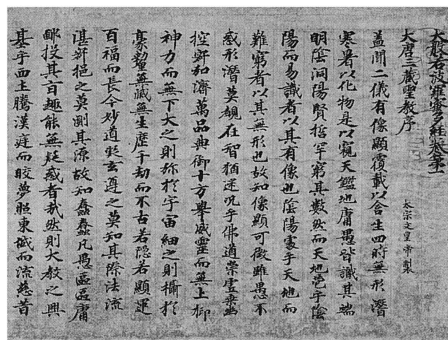 大般若波羅蜜多經卷第一
大唐三藏聖教序
太宗文皇帝製
蓋聞二儀有像顯覆載以含生四時無形潛
寒暑以化物是以窺天鑑地庸愚皆識其端
明陰洞陽賢哲罕窮其數然而天地苞乎陰
陽而易識者以其有像也陰陽處乎天地而
難窮者以其無形也故知像顯可徵雖愚不
惑形潛莫覩在智猶迷況乎佛道崇虛乘幽
控寂弘濟萬品典御十方舉威靈而無上抑
神力而無下大之則彌於宇宙細之則攝於
豪釐無滅無生歷千劫而不古若隱若顯運
百福而長今妙道凝玄遵之莫知其際法流
湛寂挹之莫測其源故知蠢蠢凡愚區區庸
鄙投其旨趣能無疑惑者哉然則大教之興
基乎西土騰漢庭而皎夢照東域而流慈昔